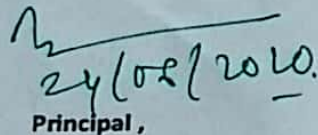 24/08/2020.
Principal,